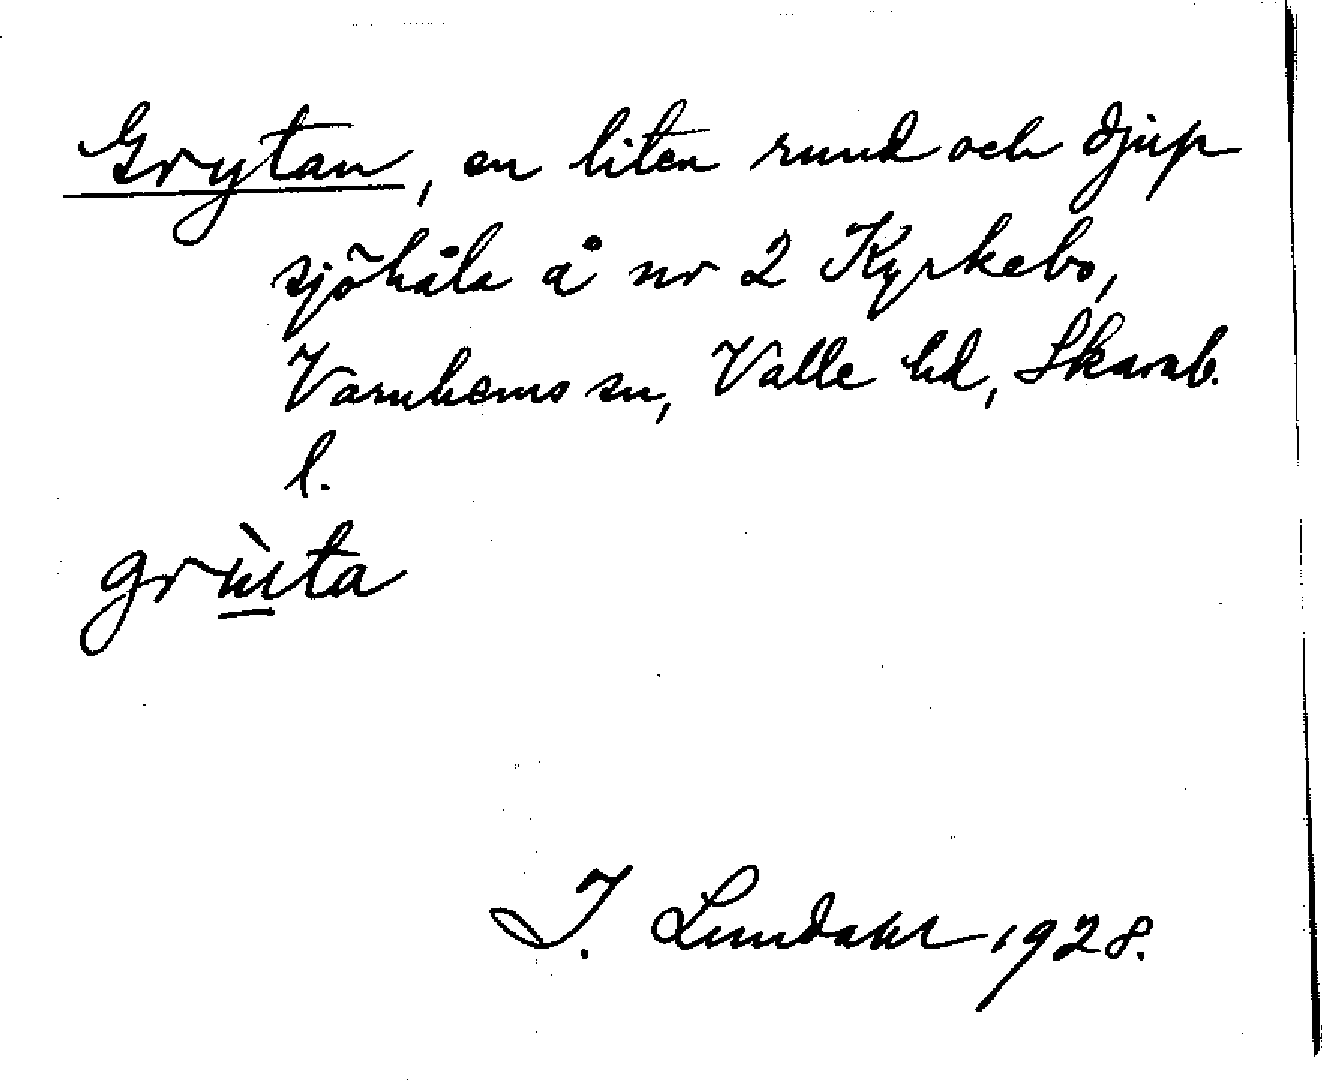 Grytan, en liten rund och djup
sjöhåla å nr 2 Kyrkebo,
Varnhems sn, Valle hd, Skarab.
l.
grùta
I. Lundahl 1928.